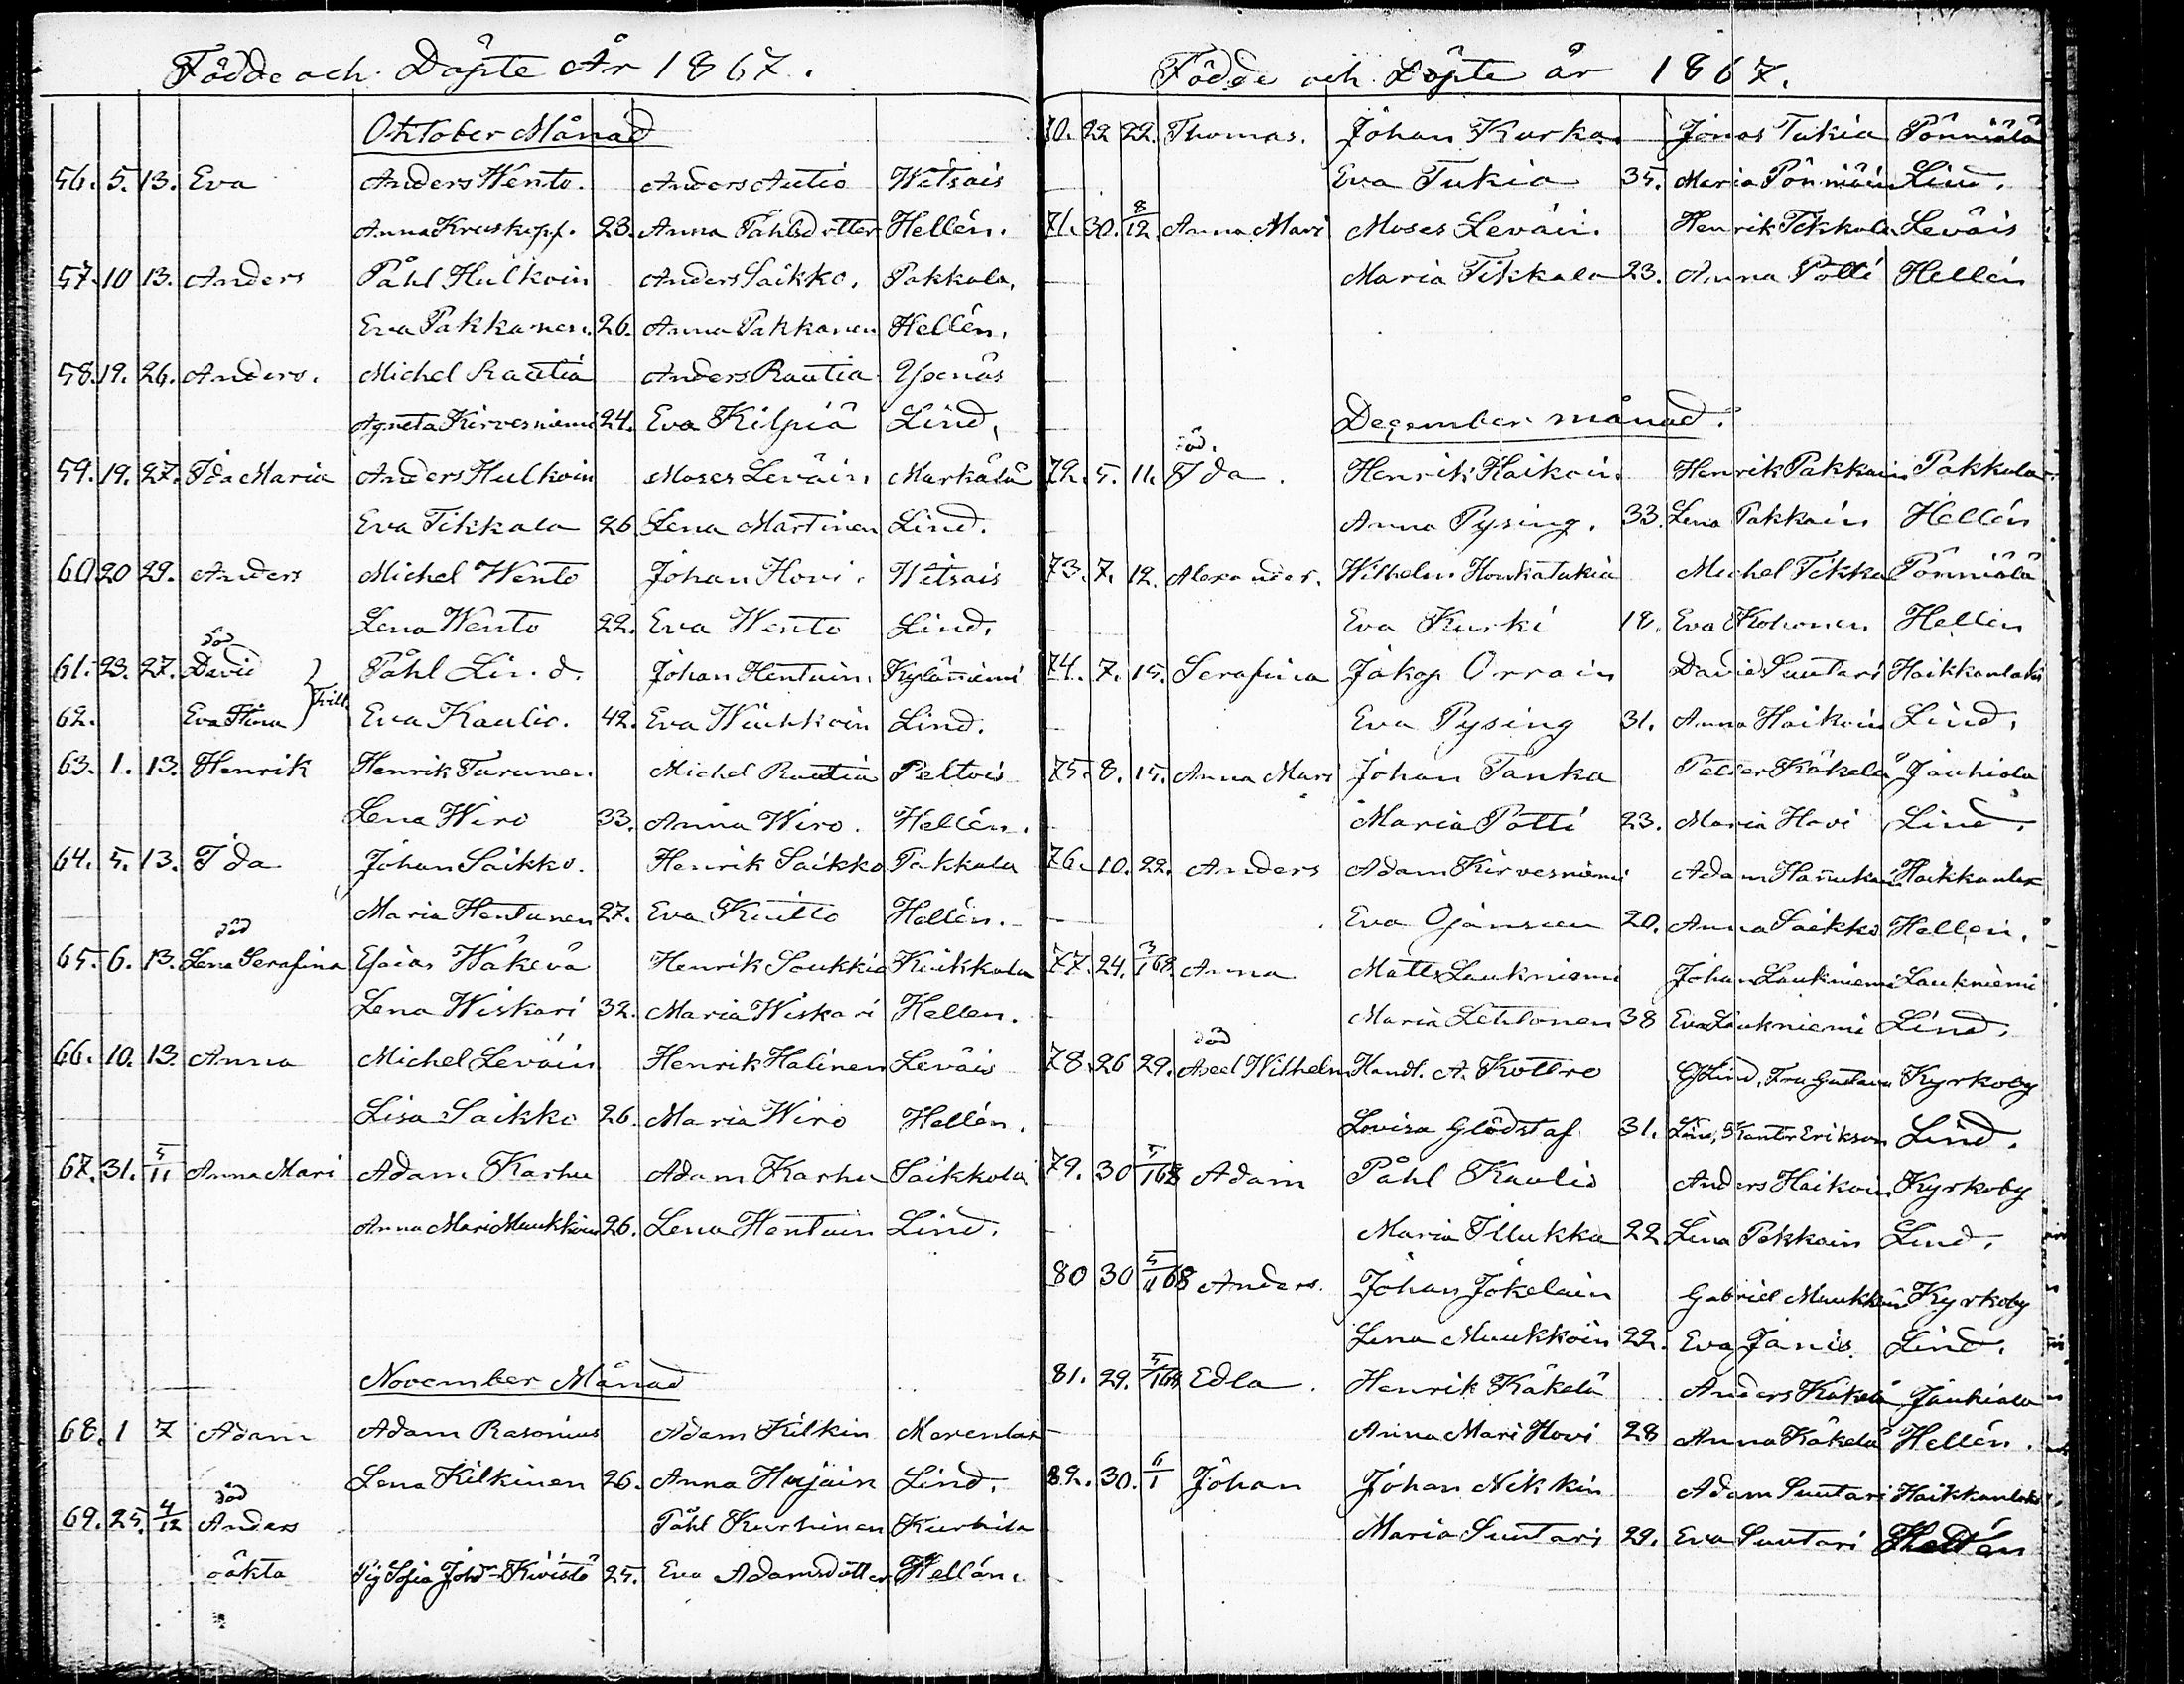 Födde och Döpte År 1867.
Oktober Månad
56. 5. 13. Eva Anders Wento. Anders Autio Witsais
Anna Kruskopf. 23. Anna Påhlsdotter Hellén.
57. 10 13. Anders Påhl Hulkoin Anders Saikko. Pakkola.
Eva Pakkanen. 26. Anna Pakkanen Hellén.
58. 19. 26. Anders. Michel Rautia Anders Rautia
Agneta Kirvesniemi 24. Eva Kilpiä Lind.
59. 19. 27. Ida Maria Anders Hulkoin Moses Leväin. Markälä
Eva Tikkala 26 Lena Martinen Lind.
60 20 29. Anders Michel Wento Johan Hovi. Witsais
Lena Wento 22. Eva Wento Lind.
död
61. 23. 27. David Påhl Lind. Johan Hentuin. Kyläniemi
62. Eva Stina Tvill Eva Kaulio. 42. Eva Lind.
63. 1. 13. Henrik Henrik Tarunen. Michel Rautia Peltois
Lena Wiro 33. Anna Wiro. Hellén.
64. 5. 13. Ida Johan Saikko. Henrik Saikko Pakkala
Maria Hentunen 27. Eva Kuitto Hellén.
död
65. 6. 13. Lena Serafina Esaias Wäkevä Henrik Soukkio Kuikkola
Lena Wiskari 32. Maria Wiskari Hellen.
66. 10. 13. Anna Michel Leväin Henrik Halinen Leväis
Lisa Saikko 26. Maria Wiro Hellén.
67. 31. 5/11 Anna Mari Adam Karhu Adam Karhu Saikkola
Anna Mari Muukkoin 26. Lena Hentuin Lind.
November Månad
68. 1 7 Adam Adam Rasonius Adam Kilkin
Lena Kilkinen 26. Anna Lind.
död
69. 25. 4/12 Anders Påhl Kurhinen Kurhila
oäkta Pig Sofia Kivistö 25. Eva Adamsdotter Hellén.
Födde och Döpte år 1867.
70. 22 22. Thomas. Johan Kurka. Jonas Tukia Pönniälä
Eva Tukia 35. Maria Pönniäin Lind.
71. 30. 8/12. Anna Mari Moses Leväin. Henrik Tikkala Leväis
Maria Tikkala 23. Anna Potti Hellén
December månad.
död.
72. 5. 11. Ida. Henrik Haikoin. Henrik Pakkain Pakkola.
Anna Pysing. 33. Lena Pakkain Hellén
73. 7. 12. Alexander. Wilhelm Houkatukia Michel Tikka Pönniälä
Eva Kurki 18. Eva Kohonen Hellén
74. 7. 15. Serafina Jakop Orrain David Suutari Haikkanlaks
Eva Pysing 31. Anna Haikoin Lind.
75. 8. 15. Anna Mari Johan Tanka Petter Käkelä Jauhiala
Maria Potti 23. Maria Hovi Lind.
76. 10. 22. Anders Adam Kirvesniemi Adam
Eva Ojansuu 20. Anna Saikko Hellén.
77. 24. 3/1 68. Anna Matts Laukniemi Johan Laukniemi Laukniemi
Maria Lehtonen 38 Eva Laukniemi Lind.
död
78. 26 29. Axel Wilhelm Handl. A. Kottro Lind, Fru Gustava Kyrkoby
Lovisa Glödstaf 31. Lind, Kantor Erikson Lind.
79. 30 5/1 68 Adam Påhl Kaulio Anders Haikoin Kyrkoby
Maria Illukka 22 Lena Pekkain Lind.
80 30 5/11 68 Anders. Johan Jokelain Gabriel Muukkoin Kyrkoby
Lena Muukkoin 22. Eva Janis. Lind.
81. 29. 5/1 68 Edla. Henrik Käkelä Anders Käkelä Jauhiala
Anna Mari Hovi 28 Anna Käkelä Hellén.
82. 30. 6/1 Johan Johan Nikkin Adam Suutari Haikkanlaks
Maria Suutari 29. Eva Suutari Hellén